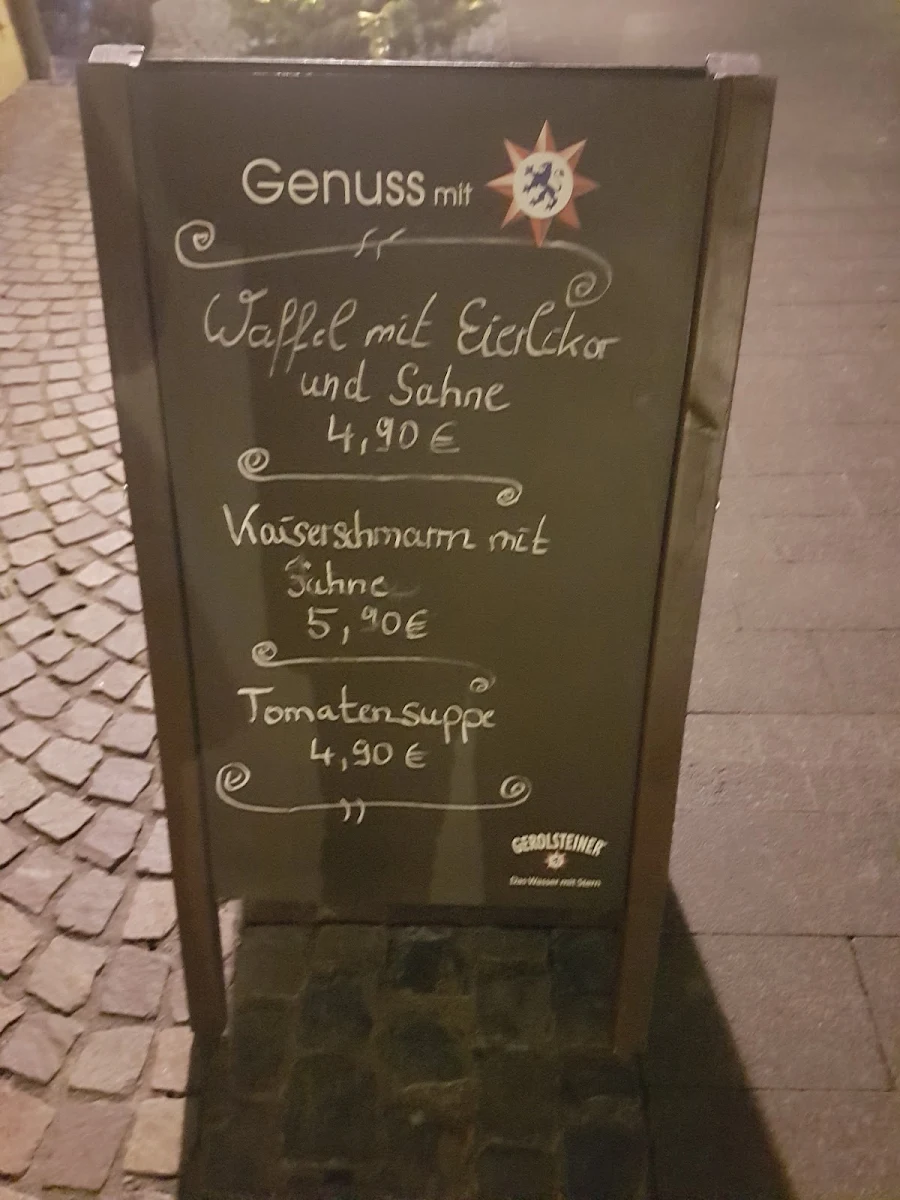 Genuss mit
Waffel mit Eierlikor
und Sahne
4,90 €
Kaiserschmarrn mit
Sahne
5,90€
Tomatensuppe
4,90 €
GEROLSTEINER
Das Wasser mit Stern